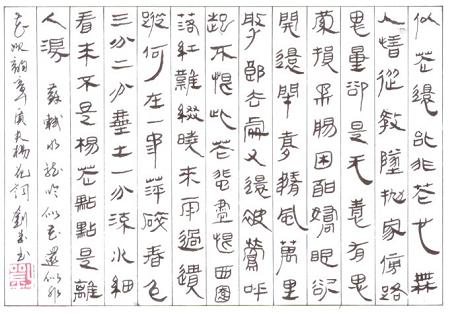 似花還似非花也無
人惜從教墜拋家傍路
思量卻是无意有思
縈損柔腸困酣嬌眼欲
開還閉夢隨風萬里
尋郎去處又還被鶯呼
起不恨此花飛盡恨西園
落紅難綴曉來雨過遺
蹤何在一池萍碎春色
三分二分塵土一分流水細
看來不是楊花點點是離
人淚 蘇軾水龍吟似花還似非
花次韻章質夫楊花詞 劉書